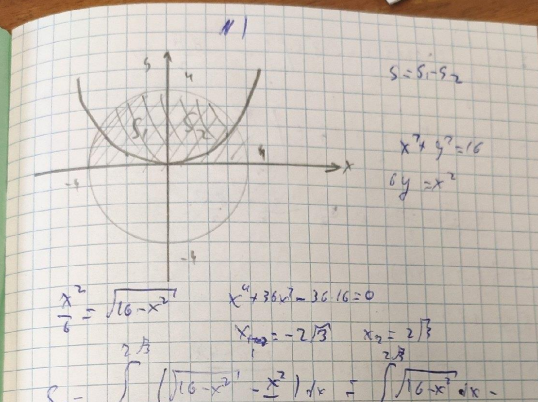 N1
4
S = S₁ - S₂
S₁ S₂
x² + y² = 16
-4 4 x
6y = x²
-4
x²/6 = √(16-x²) x⁴ + 36x² - 36·16 = 0
x₁ = -2√3 x₂ = 2√3
∫ 2√3 (√(16-x²) - x²) dx = ∫ 2√3 √(16-x²) dx -